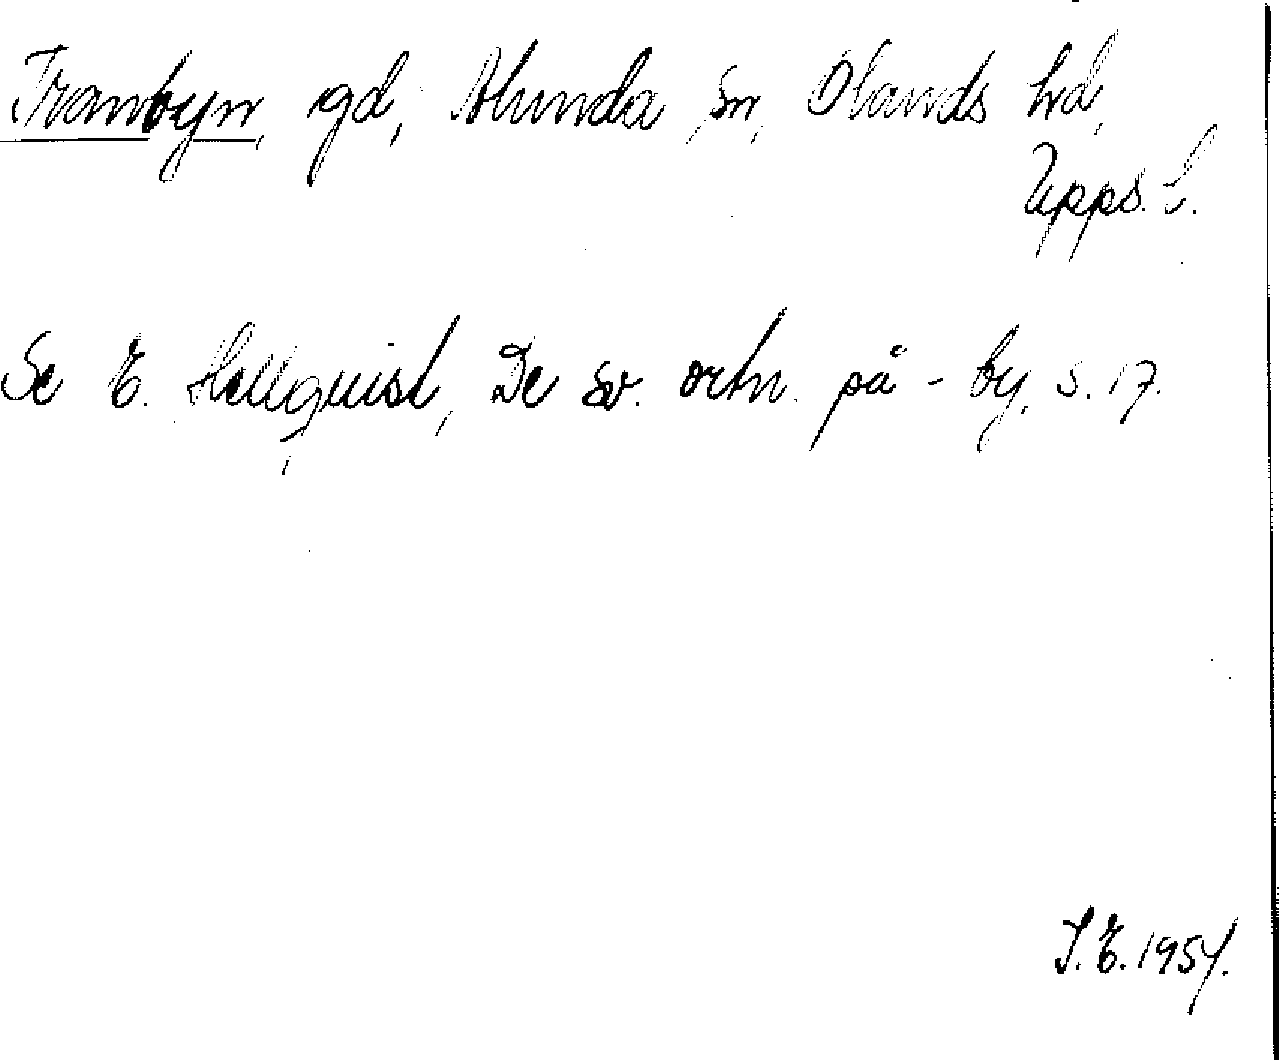 Tranbyn, gd, Alunda sn, Olands hd,
Upps. l.
Se E. Hellquist, De sv. ortn. på -by, s. 17.
I.E. 1954.